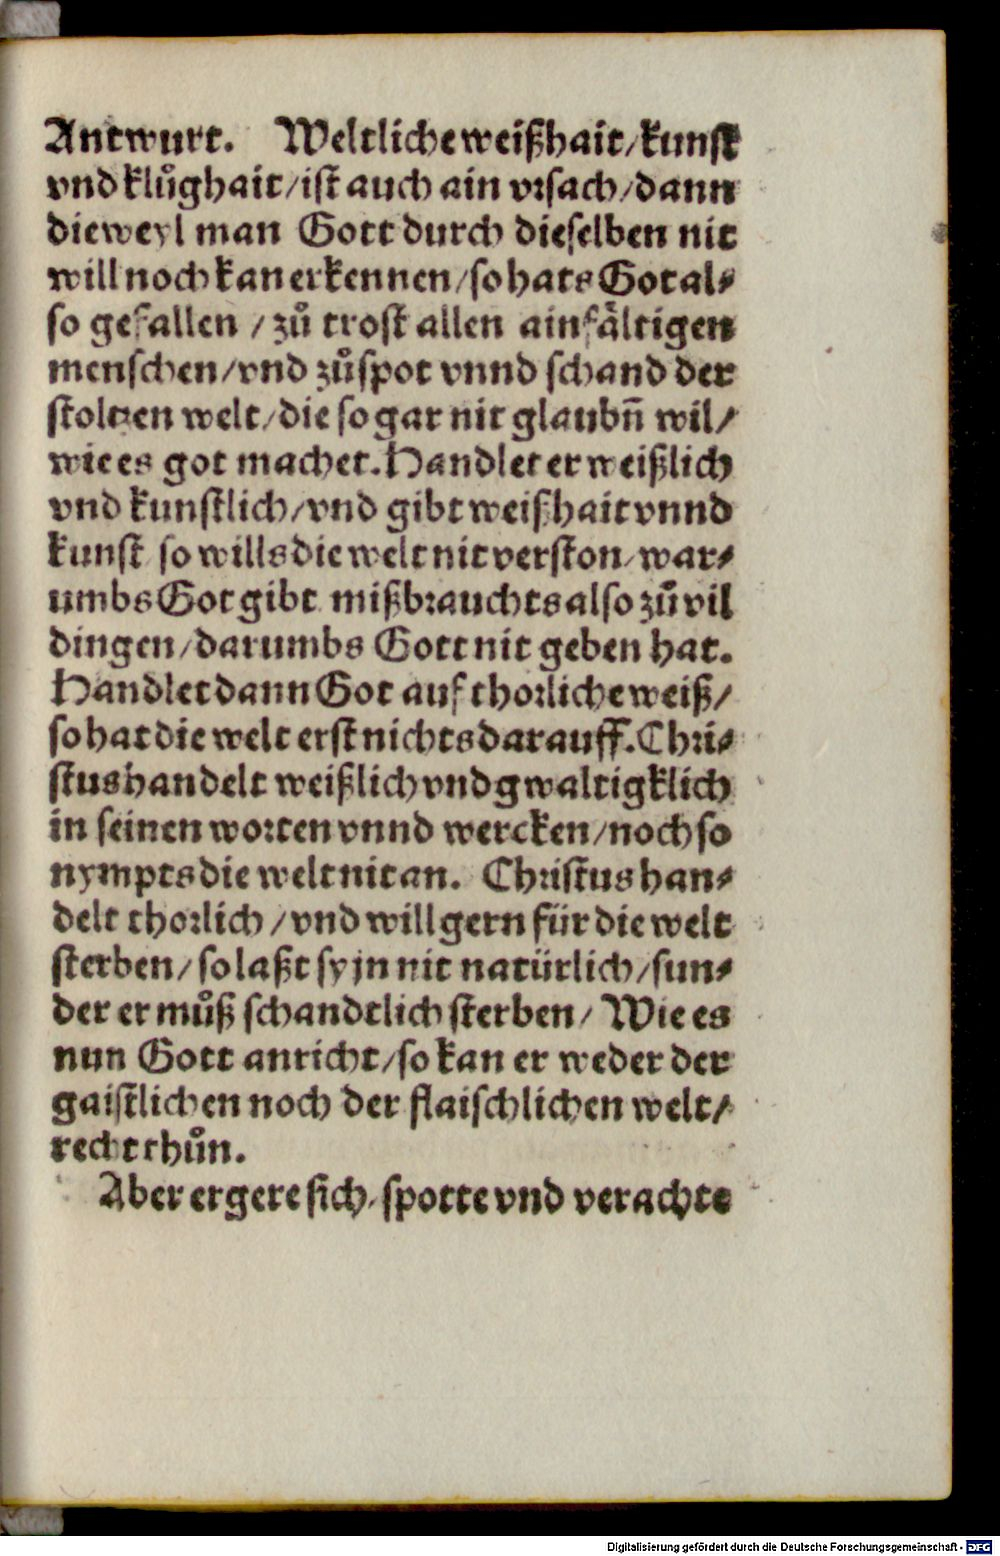 Antwurt. Weltliche weißhait/kunst
vnd klůghait/ist auch ain vrsach/dann
dieweyl man Gott durch dieselben nit
will noch kan erkennen/so hats Got al⸗
so gefallen / zů trost allen ainfältigen
menschen/vnd zů spot vnnd schand der
stoltzen welt/die so gar nit glaubn̄ wil/
wie es got machet. Handlet er weißlich
vnd kunstlich/vnd gibt weißhait vnnd
kunst so wills die welt nit verston/war⸗
umbs Got gibt mißbrauchts also zů vil
dingen/darumbs Gott nit geben hat.
Handlet dann Got auf thorliche weiß/
so hat die welt erst nichts darauff. Chri⸗
stus handelt weißlich vnd gwaltigklich
in seinen worten vnnd wercken/noch so
nympts die welt nit an. Christus han⸗
delt thorlich/vnd will gern für die welt
sterben/so laßt sy jn nit natürlich/sun⸗
der er můß schandtlich sterben/ Wie es
nun Gott anricht/so kan er weder der
gaistlichen noch der flaischlichen welt/
recht thůn.
Aber ergere sich/spotte vnd verachte
Digitalisierung gefördert durch die Deutsche Forschungsgemeinschaft - DFG